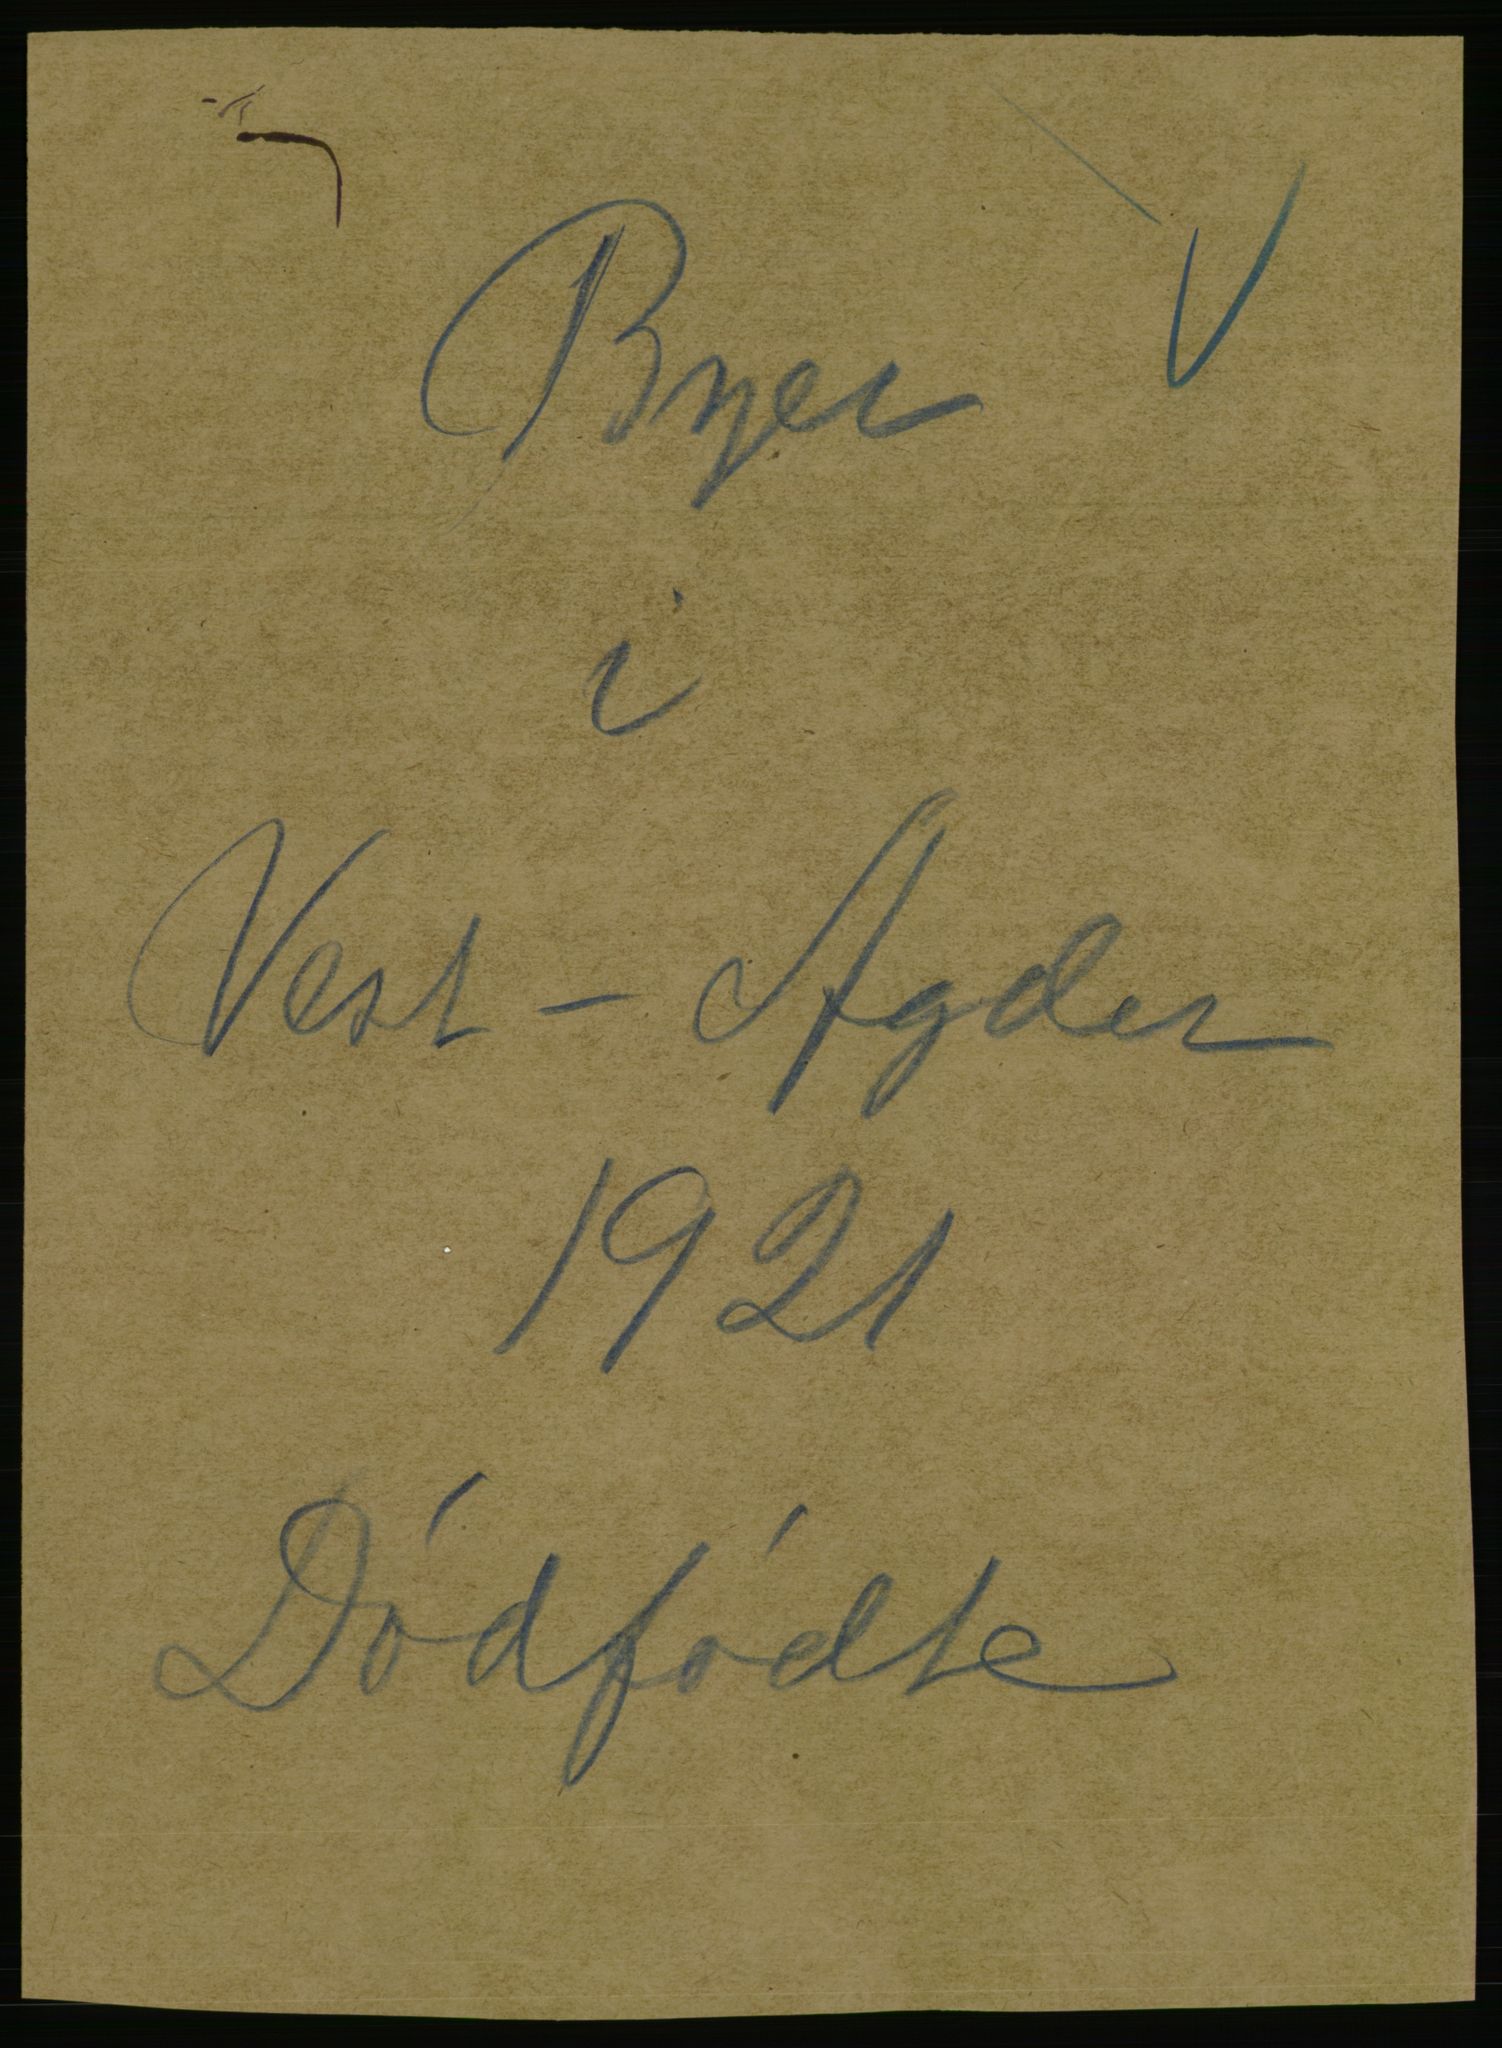 Byer
i
Vest - Agder
1921
Dódfódte